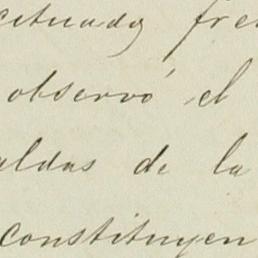 situado fre
observó el
aldas de la
constituyen